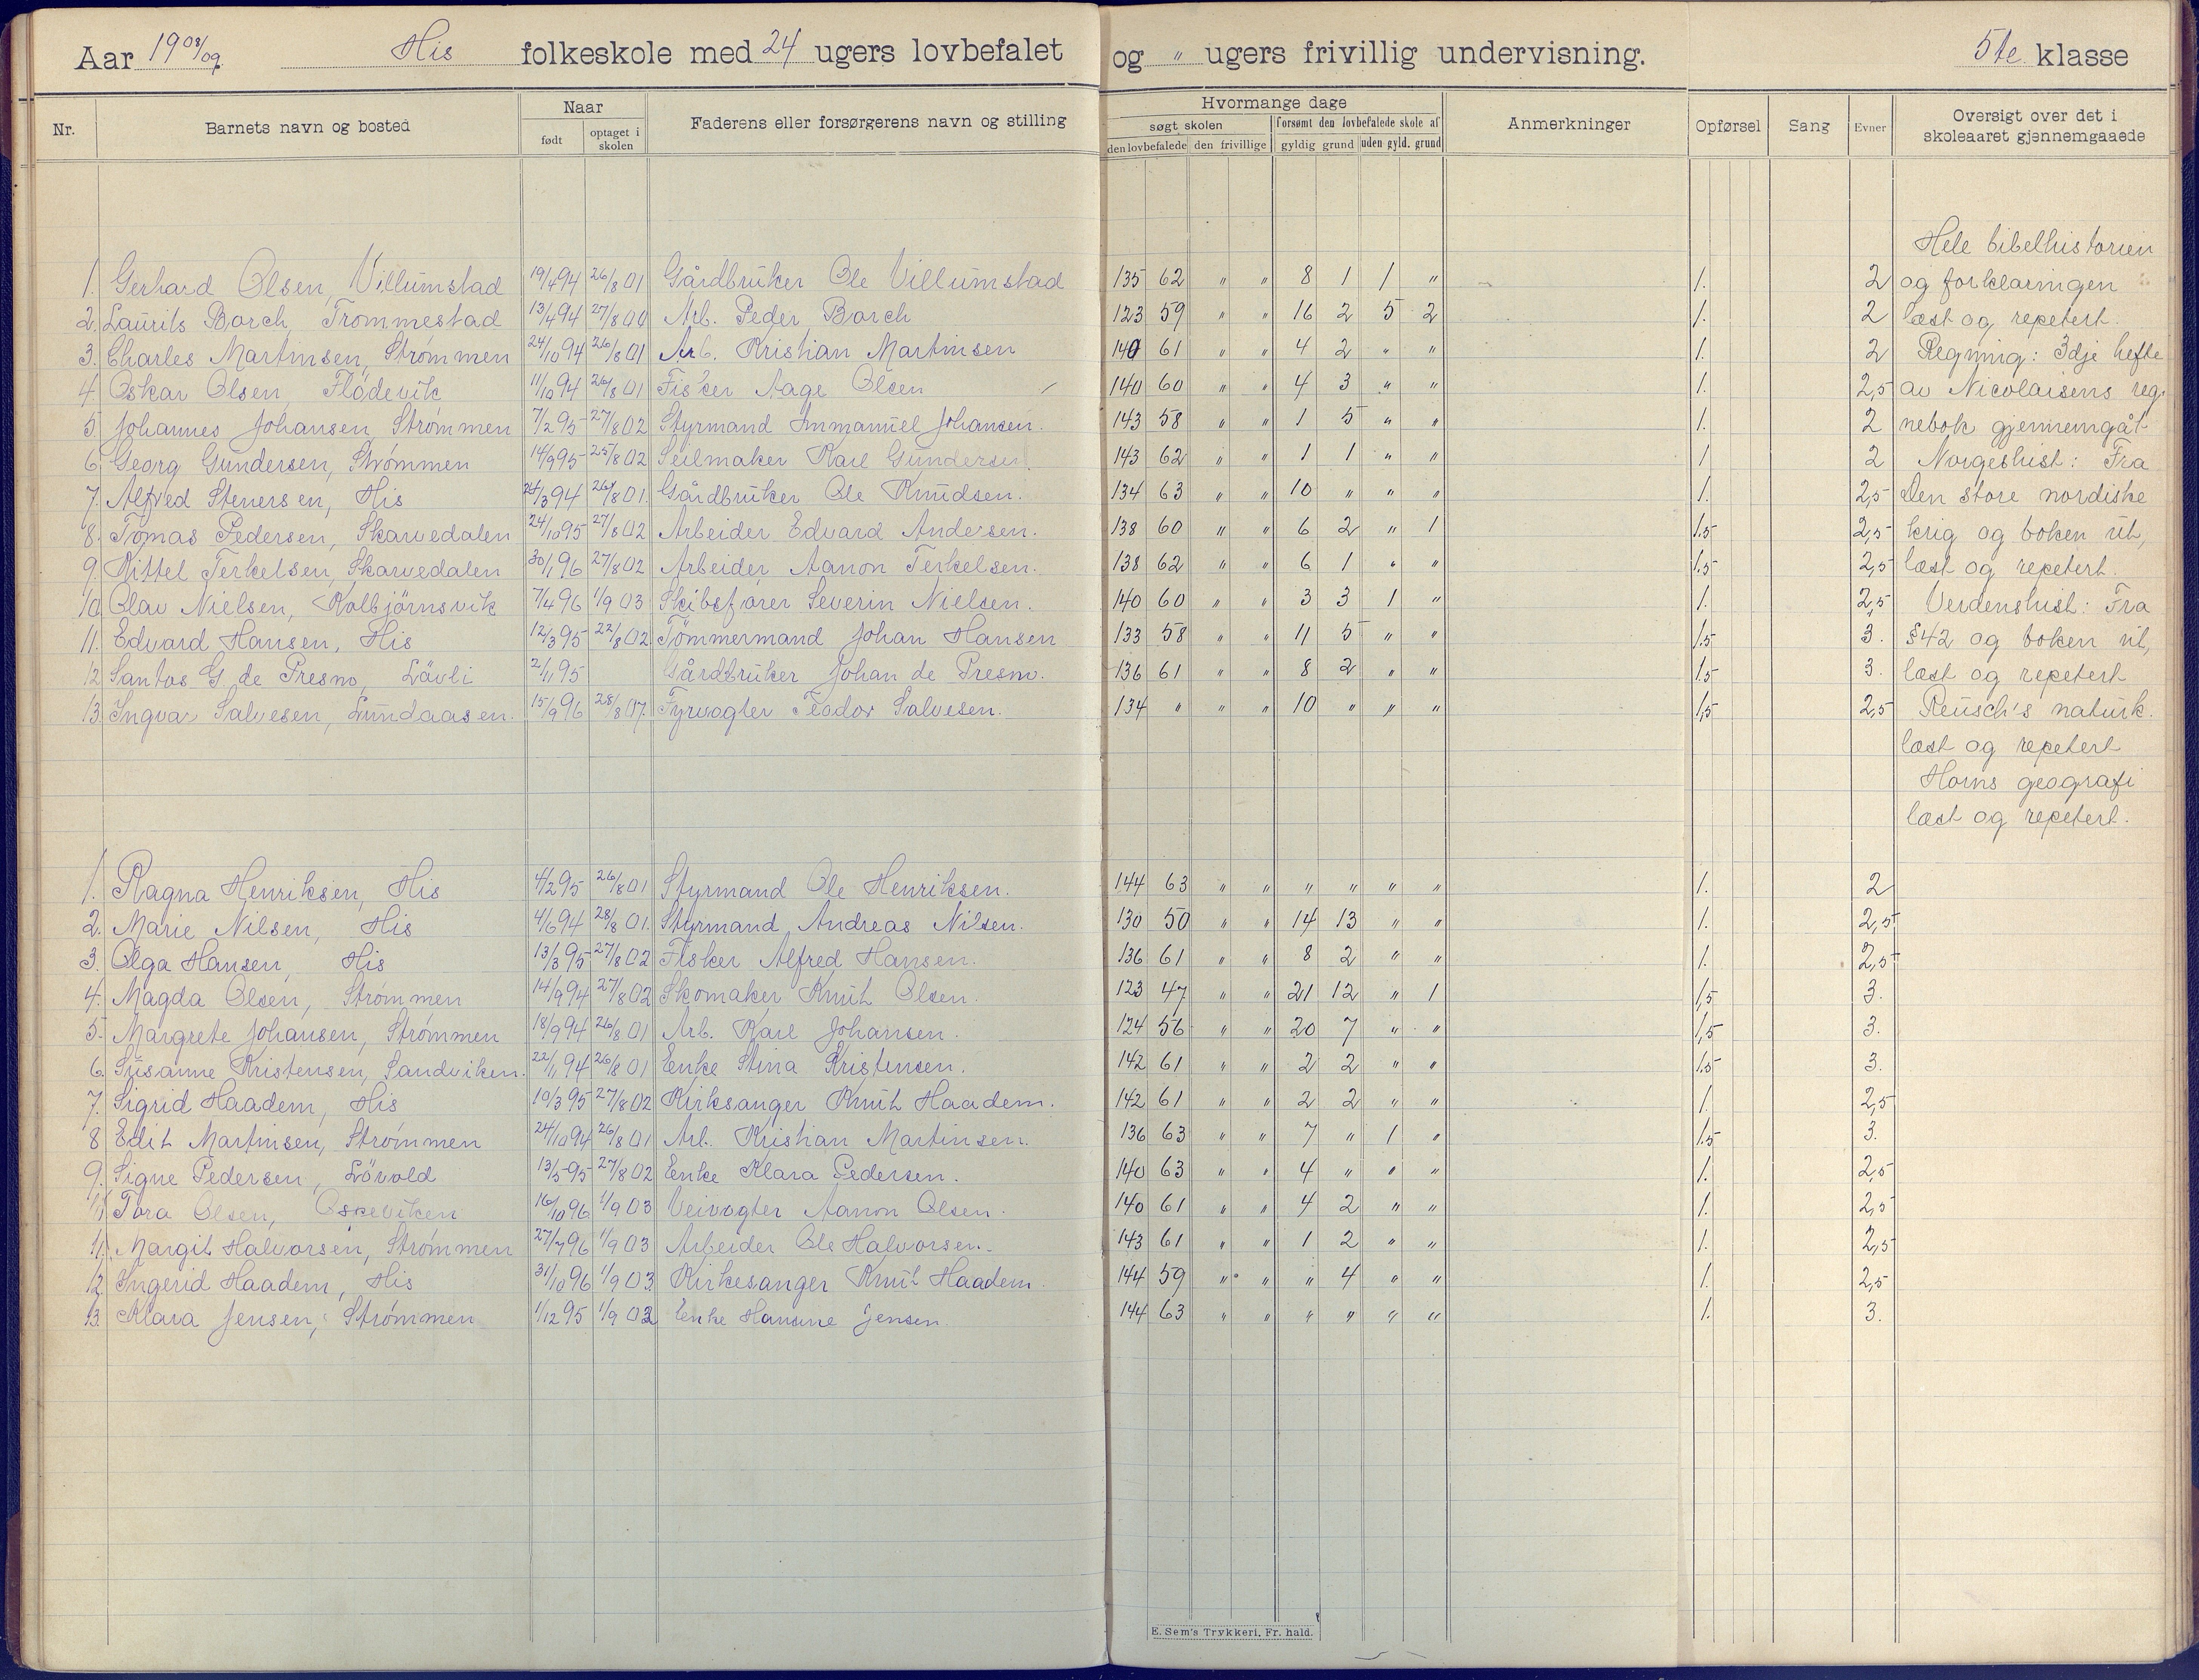 Aar 1908/09. His folkeskole med 24 ugers lovbefalet og " ugers frivillig undervisning. 5te klasse
Nr. Barnets navn og bosted Naar født optaget i skolen Faderens eller forsørgerens navn og stilling Hvormange dage søgt skolen den lovbefalede den frivillige forsømt den lovbefalede skole af gyldig grund uden gyld. grund Anmerkninger Opførsel Sang Evner Oversigt over det i skoleaaret gjennemgaaede
Hele bibelhistorien
1. Gerhard Olsen, Villumstad 19/4 94 26/8 01 Gårdbruker Ole Villumstad 135 62 " " 8 1 1 " 1. 2 og forklaringen
2. Laurits Borch, Trommestad 13/4 94 27/8 00 Arb. Peder Borch 123 59 " " 16 2 5 2 1. 2 læst og repetert.
3. Charles Martinsen, Strømmen 24/10 94 26/8 01 Arb. Kristian Martinsen 140 61 " " 4 2 " " 1. 2 Regning: 3dje hefte
4. Oskar Olsen, Flødevik 11/10 94 26/8 01 Fisker Aage Olsen 140 60 " " 4 3 " " 1. 2,5 av Nicolaisens reg-
5. Johannes Johansen, Strømmen 7/2 95 27/8 02 Styrmand Immanuel Johansen. 143 58 " " 1 5 " " 1. 2 nebok gjennemgåt
6. Georg Gundersen, Strømmen 14/9 95 25/8 02 Seilmaker Karl Gundersen 143 62 " " 1 1 " " 1 2 Norgeshist: Fra
7. Alfred Stenersen, His 24/3 94 26/8 01. Gårdbruker Ole Knudsen. 134 63 " " 10 " " " 1. 2,5 Den store nordiske
8. Tomas Pedersen, Skarvedalen 24/10 95 27/8 02 Arbeider Edvard Andersen. 138 60 " " 6 2 " 1 1.5 2,5 krig og boken ut,
9. Kittel Terkelsen, Skarvedalen 30/1 96 27/8 02 Arbeider Aanon Terkelsen. 138 62 " " 6 1 " " 1.5 2,5 læst og repetert.
10 Olav Nielsen, Kolbjörnsvik 7/4 96 1/9 03 Skibsfører Severin Nielsen. 140 60 " " 3 3 1 " 1. 2,5 Verdenshist: Fra
11. Edvard Hansen, His 12/3 95 22/8 02. Tömmermand Johan Hansen 133 58 " " 11 5 " " 1.5 3. §42 og boken ut,
12 Santos G. de Presno, Lövli 2/11 95 Gårdbruker Johan de Presno. 136 61 " " 8 2 " " 1.5 3. læst og repetert
13. Ingvar Salvesen, Lundaasen. 15/9 96 28/8 07. Fyrvogter Teodor Salvesen. 134 " " " 10 " " " 1,5 2,5 Reusch's naturk.
læst og repetert
Horns geografi
læst og repetert.
1. Ragna Henriksen, His 4/2 95 26/8 01 Styrmand Ole Henriksen. 144 63 " " " " " " 1. 2
2. Marie Nilsen, His 4/6 94 28/8 01. Styrmand Andreas Nilsen. 130 50 " " 14 13 " " 1. 2,5
3. Olga Hansen, His 13/3 95 27/8 02 Fisker Alfred Hansen. 136 61 " " 8 2 " " 1. 2,5
4. Magda Olsen, Strømmen 14/9 94 27/8 02 Skomaker Knut Olsen. 123 47 " " 21 12 " 1 1,5 3.
5. Margrete Johansen, Strømmen 18/9 94 26/8 01 Arb. Karl Johansen. 124 56 " " 20 7 " " 1,5 3.
6. Susanne Kristensen, Sandviken. 22/1 94 26/8 01 Enke Stina Kristensen. 142 61 " " 2 2 " " 1.5 3.
7. Sigrid Haadem, His 10/3 95 27/8 02 Kirksanger Knut Haadem. 142 61 " " 2 2 " " 1. 2,5
8 Edit Martinsen, Strømmen 24/10 94 26/8 01 Arb. Kristian Martinsen. 136 63 " " 7 " 1 " 1.5 3.
9. Signe Pedersen, Lövold 13/5 95 27/8 02 Enke Klara Pedersen. 140 63 " " 4 " " " 1. 2,5
Tora Olsen, 16/10 96 1/9 03 Veivogter Aanon Olsen. 140 61 " " 4 2 " " 1. 2,5
11. Margit Halvorsen, Strømmen 27/7 96 1/9 03 Arbeider Ole Halvorsen. 143 61 " " 1 2 " " 1. 2,5
12. Ingerid Haadem, His 31/10 96 1/9 03. Kirkesanger Knut Haadem. 144 59 " " " 4 " " 1. 2,5
13. Klara Jensen, Strømmen 1/12 95 1/9 02 Enke Hansine Jensen. 144 63 " " " " " " 1. 3.
E. Sem's Trykkeri, Fr. hald.